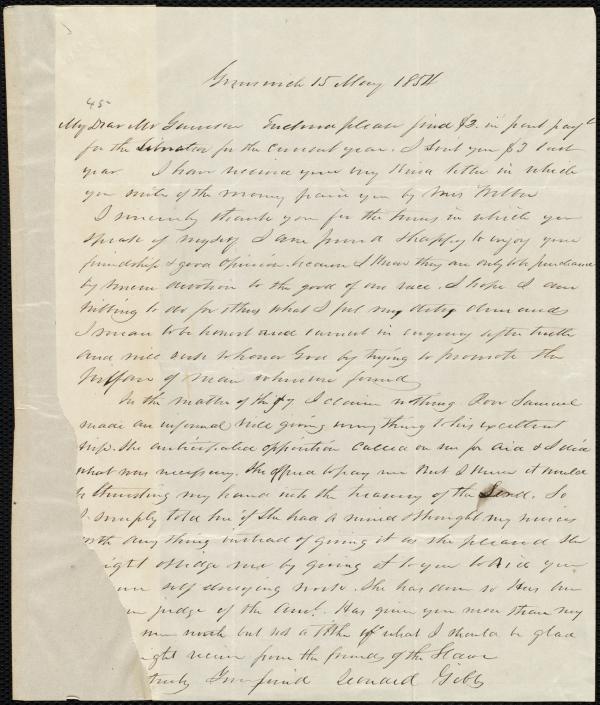 Greenwich 15 May 1854
45
My Dear Mr Garrison Enclosed please find $3. in part payt
for the Liberator for the current year. I sent you $3 last
year I have received your very kind letter in which
you write of the money paid you by Mrs Wilbur
I sincerely thank you for the terms in which you
speak of myself I am proud & happy to enjoy your
friendship & good opinion because I know they are only to be purchased
by sincere devotion to the good of our race. I hope I am
willing to do for others what I feel my duty demands
I mean to be honest and earnest in enquiry after truth
and will seek to honor God by trying to promote the
Welfare of man wherever found
In the matter of the $7 I claim nothing Poor Samuel
made an informal will giving every thing to his excellent
wife. She anticipated opposition called on me for aid & I did
what was necessary. She offered to pay me But I knew it would
be thrusting my hand into the treasury of the Lord. So
I simply told her if she had a mind & thought my services
worth any thing instead of giving it as she pleased she
might oblige me by giving it to you to aid your
own self denying work. She has done so Has been
judge of the amt. Has given you more than my
worth but not a tithe of what I should be glad
might receive from the friends of the Slave
truly Your friend Leonard Gibbs